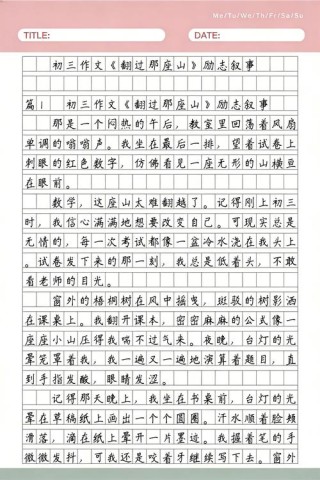 Me/Tu/We/Th/Fr/Sa/Su
TITLE:
DATE:
初三作文《翻过那座山》励志叙事
篇1 初三作文《翻过那座山》励志叙事
那是一个闷热的午后，教室里回荡着风扇
单调的嗡嗡声。我坐在最后一排，望着试卷上
刺眼的红色数字，仿佛看见一座无形的山横亘
在眼前。
数学，这座山太难翻越了。记得刚上初三
时，我信心满满地想要改变自己。可现实总是
无情的，每一次考试都像一盆冷水浇在我头上
。试卷发下来的那一刻，我总是低着头，不敢
看老师的目光。
窗外的梧桐树在风中摇曳，斑驳的树影洒
在课桌上。我翻开课本，密密麻麻的公式像一
座座小山压得我喘不过气来。夜晚，台灯的光
晕笼罩着我，我一遍又一遍地演算着题目，直
到手指发酸，眼睛发涩。
记得那天晚上，我坐在书桌前，台灯的光
晕在草稿纸上画出一个个圆圈。汗水顺着脸颊
滑落，滴在纸上晕开一片墨迹。我握着笔的手
微微发抖，可我还是咬着牙继续写下去。窗外